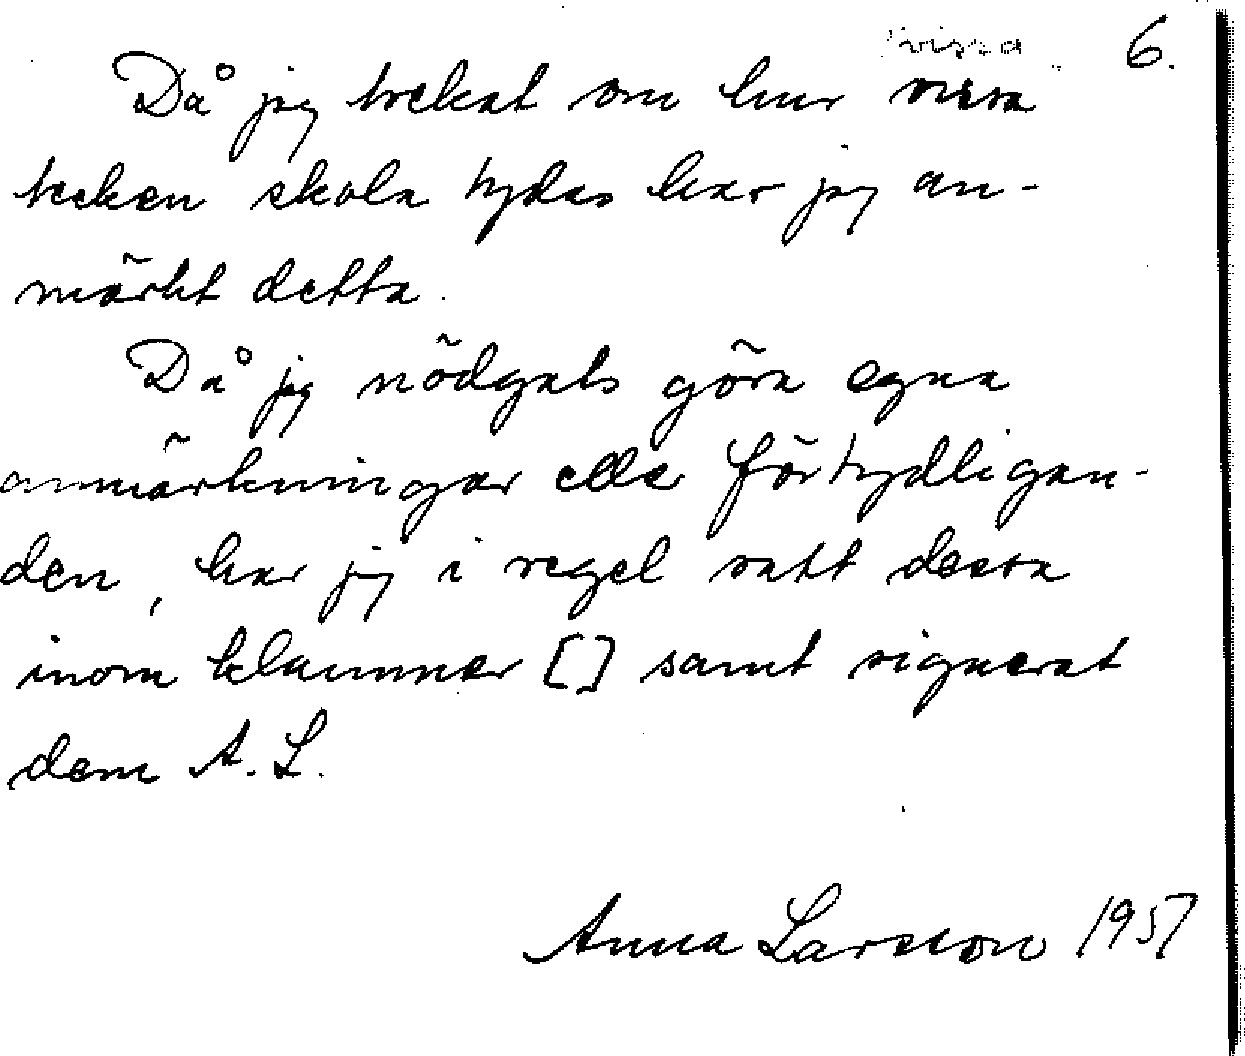 vissa 6.
Då jag tvekat om hur vissa
tecken skola tydas har jag an-
märkt detta.
Då jag nödgats göra egna
anmärkningar eller förtydligan-
den, har jag i regel satt dessa
inom klammer [ ] samt signerat
dem A. L.
Anna Larsson 1957